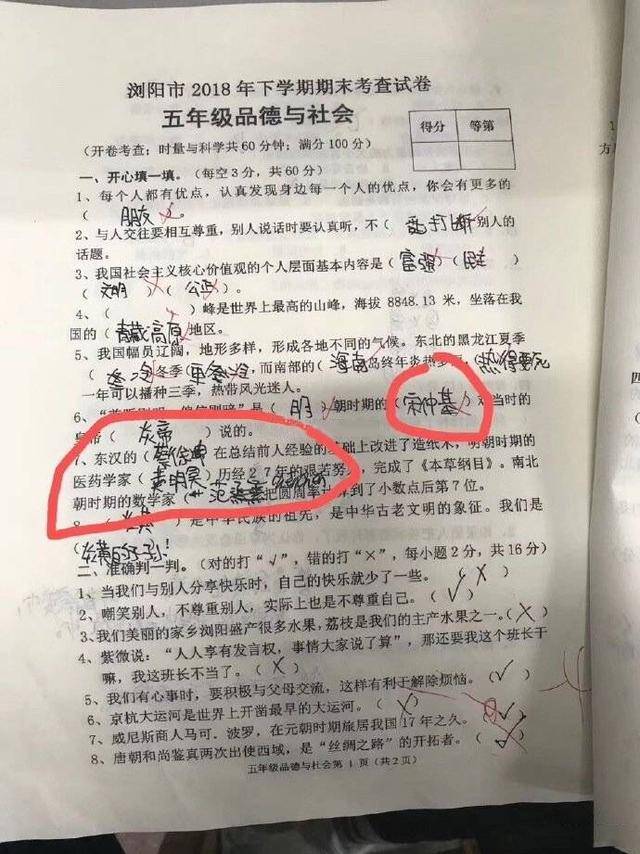 浏阳市2018年下学期期末考查试卷
五年级品德与社会
得分 等第
(开卷考查;时量与科学共60分钟;满分100分)
一、开心填一填。(每空3分,共60分)
1、每个人都有优点,认真发现身边每一个人的优点,你会有更多的
( 朋友 )。
2、与人交往要相互尊重,别人说话时要认真听,不( 乱打断 )别人的
话题。
3、我国社会主义核心价值观的个人层面基本内容是( 富强 )( 民主 )
( 文明 )( 公正 )。
4、( )峰是世界上最高的山峰,海拔8848.13米,坐落在我
国的( 青藏高原 )地区。
5、我国幅员辽阔,地形多样,形成各地不同的气候。东北的黑龙江夏季
( )冬季( ),而南部的( 海南 )岛终年炎热多雨,( 热得要死 )
一年可以播种三季,热带风光迷人。
6、“兼听则明,偏信则暗”是( 明 )朝时期的( 宋仲基 )对当时的
皇帝( 炎帝 )说的。
7、东汉的( 蔡徐坤 )在总结前人经验的基础上改进了造纸术,明朝时期的
医药学家( )历经27年的艰苦努力,完成了《本草纲目》。南北
朝时期的数学家( )把圆周率计算到了小数点后第7位。
8、( )是中华民族的祖先,是中华古老文明的象征。我们是
( 炎黄的子孙! )
二、准确判一判。(对的打“√”,错的打“×”,每小题2分,共16分)
1、当我们与别人分享快乐时,自己的快乐就少了一些。( X )
2、嘲笑别人,不尊重别人,实际上也是不尊重自己。( √ )
3、我们美丽的家乡浏阳盛产很多水果,荔枝是我们的主产水果之一。( X )
4、紫微说:“人人享有发言权,事情大家说了算”,那还要我这个班长干
嘛,我这班长不当了。( X )
5、我们有心事时,要积极与父母交流,这样有利于解除烦恼。( √ )
6、京杭大运河是世界上开凿最早的大运河。( X )
7、威尼斯商人马可.波罗,在元朝时期旅居我国17年之久。( )
8、唐朝和尚鉴真两次出使西域,是“丝绸之路”的开拓者。( )
五年级品德与社会第1页(共2页)